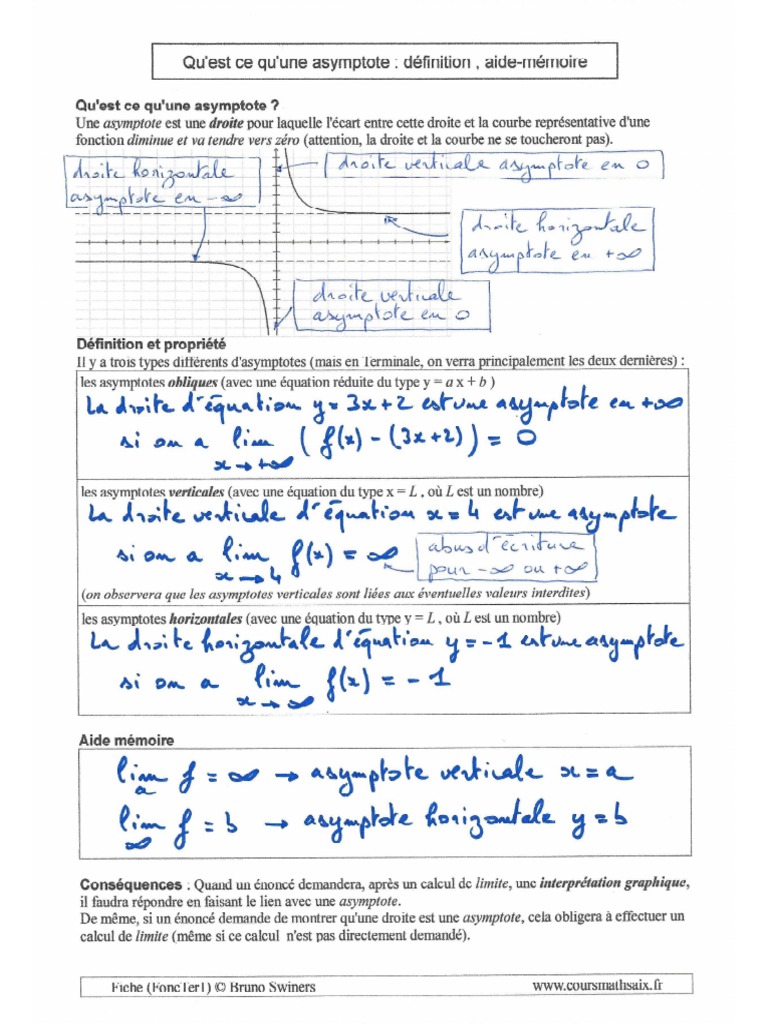 Qu'est ce qu'une asymptote : définition , aide-mémoire
Qu'est ce qu'une asymptote ?
Une asymptote est une droite pour laquelle l'écart entre cette droite et la courbe représentative d'une
fonction diminue et va tendre vers zéro (attention, la droite et la courbe ne se toucheront pas).
droite horizontale
asymptote en -∞
droite verticale asymptote en 0
droite horizontale
asymptote en +∞
droite verticale
asymptote en 0
Définition et propriété
Il y a trois types différents d'asymptotes (mais en Terminale, on verra principalement les deux dernières) :
les asymptotes obliques (avec une équation réduite du type y = a x + b )
La droite d'équation y = 3x+2 est une asymptote en +∞
si on a lim ( f(x) - (3x+2) ) = 0
x → +∞
les asymptotes verticales (avec une équation du type x = L , où L est un nombre)
La droite verticale d'équation x = 4 est une asymptote
si on a lim f(x) = ∞
x → 4
abus d'écriture
pour -∞ ou +∞
(on observera que les asymptotes verticales sont liées aux éventuelles valeurs interdites)
les asymptotes horizontales (avec une équation du type y = L , où L est un nombre)
La droite horizontale d'équation y = -1 est une asymptote
si on a lim f(x) = -1
x → ∞
Aide mémoire
lim f = ∞ → asymptote verticale x = a
a
lim f = b → asymptote horizontale y = b
∞
Conséquences : Quand un énoncé demandera, après un calcul de limite, une interprétation graphique,
il faudra répondre en faisant le lien avec une asymptote.
De même, si un énoncé demande de montrer qu'une droite est une asymptote, cela obligera à effectuer un
calcul de limite (même si ce calcul n'est pas directement demandé).
Fiche (FoncTer1) © Bruno Swiners
www.coursmathsaix.fr